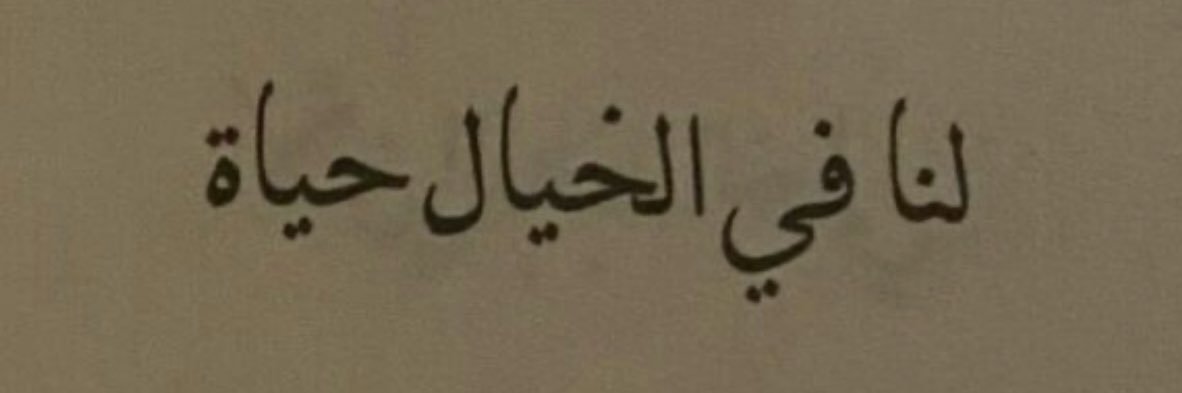 لنا في الخيال حياة